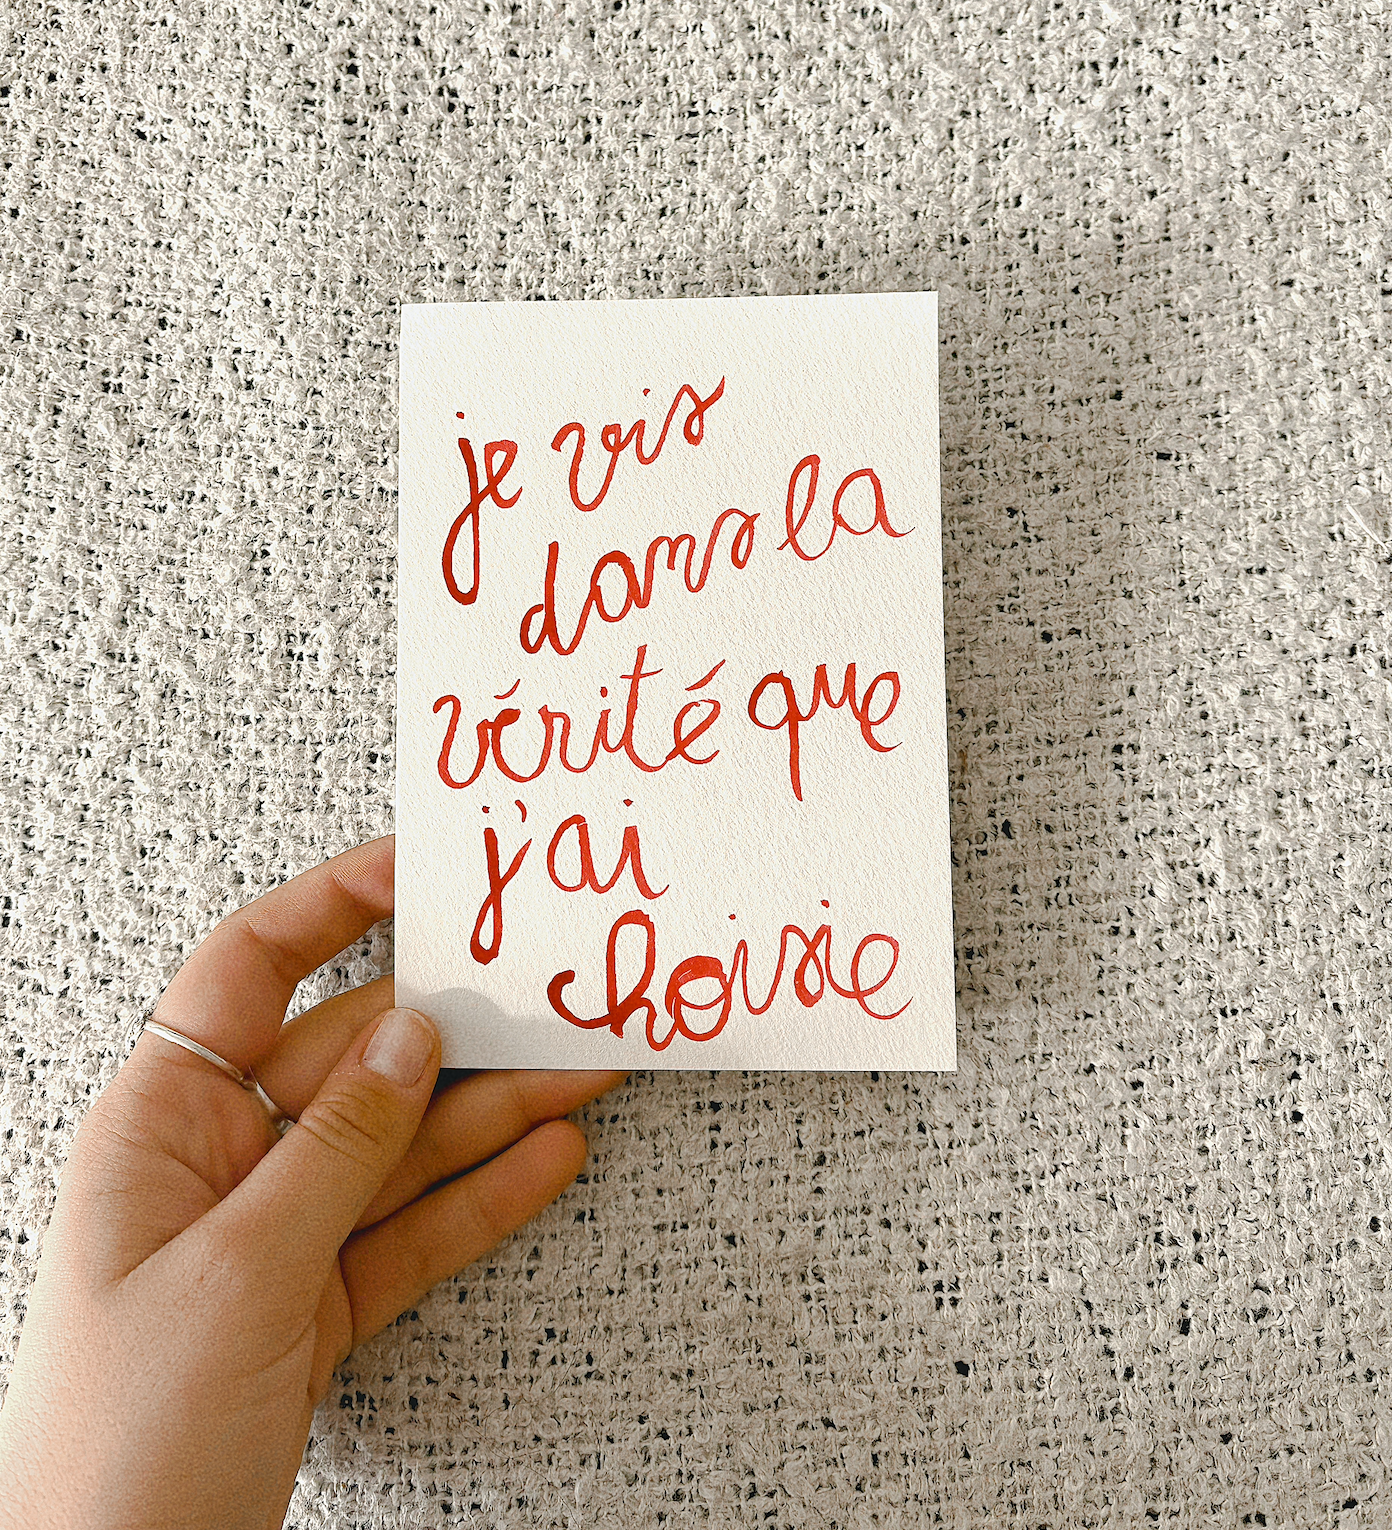 je vis
dans la
vérité que
j'ai
choisie